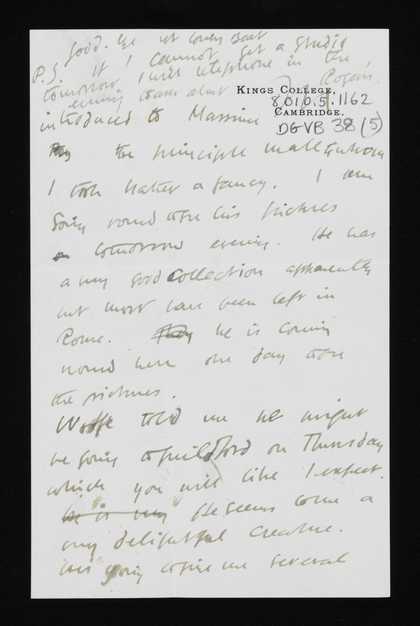 good.
P.S. If I cannot get a studio
tomorrow I will telephone in the
evening
KINGS COLLEGE,
8010.5.1162
CAMBRIDGE.
DGVB 38 (5)
introduced to Massine
the principle
I took rather a fancy. I am
going round to see his pictures
tomorrow evening. He has
a very good collection apparently
but most have been left in
Rome. he is coming
round here one day to see
the pictures.
Wolfe told me he might
be going to Guildford on Thursday
which you will like I expect.
He is very He seems to me a
very delightful creature.
his going to give me several